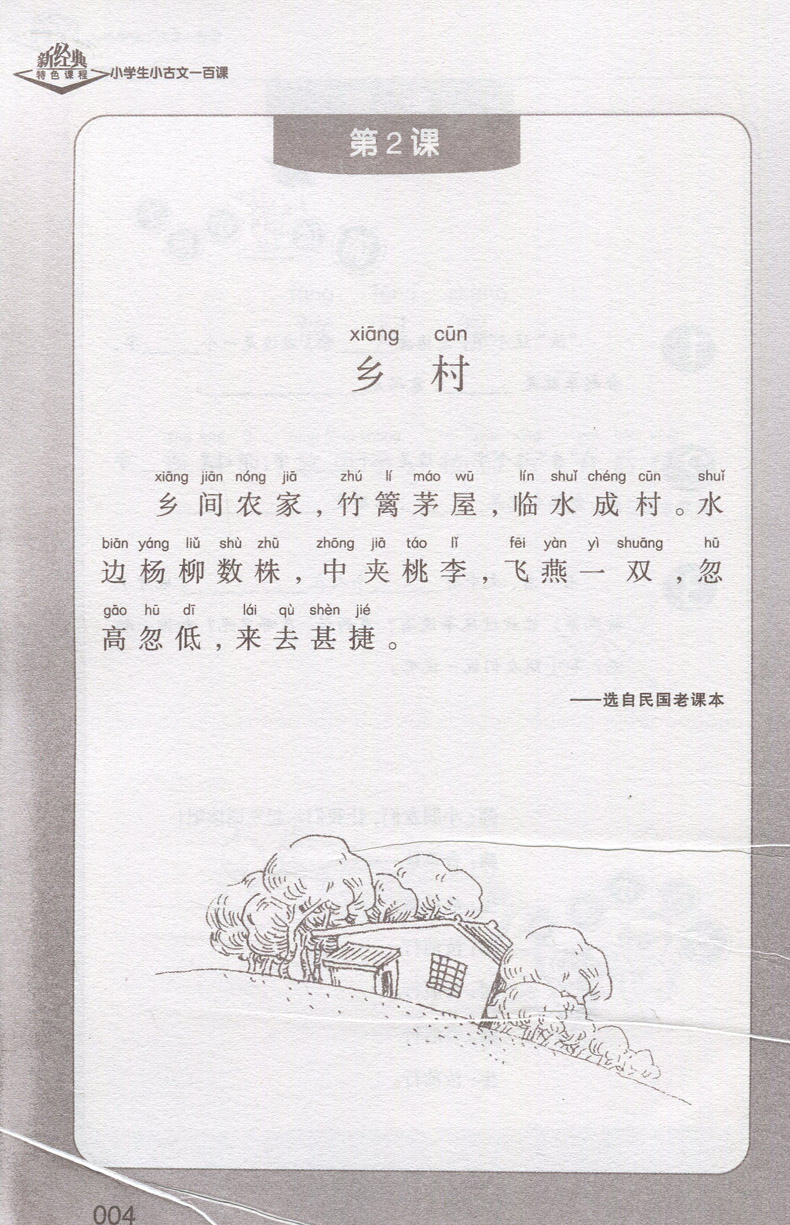 新经典
特色课程
小学生小古文一百课
第2课
xiāng cūn
乡村
xiāng jiān nóng jiā zhú lí máo wū lín shuǐ chéng cūn shuǐ
乡间农家,竹篱茅屋,临水成村。水
biān yáng liǔ shù zhū zhōng jiā táo lǐ fēi yàn yì shuāng hū
边杨柳数株,中夹桃李,飞燕一双,忽
gāo hū dī lái qù shèn jié
高忽低,来去甚捷。
——选自民国老课本
004